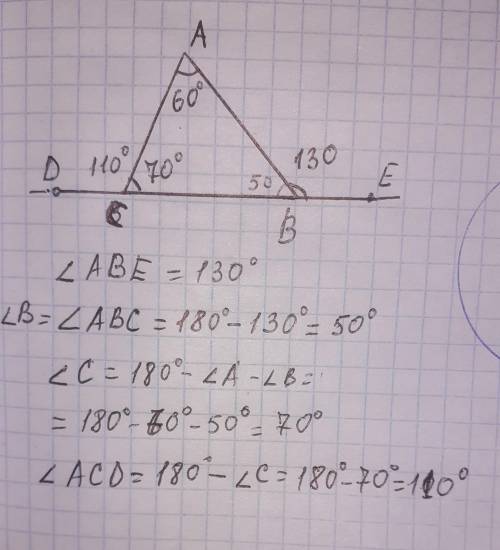 A
60°
D 110° 70° 50 130 E
C B
∠ABE = 130°
∠B = ∠ABC = 180° - 130° = 50°
∠C = 180° - ∠A - ∠B =
= 180° - 60° - 50° = 70°
∠ACD = 180° - ∠C = 180° - 70° = 110°